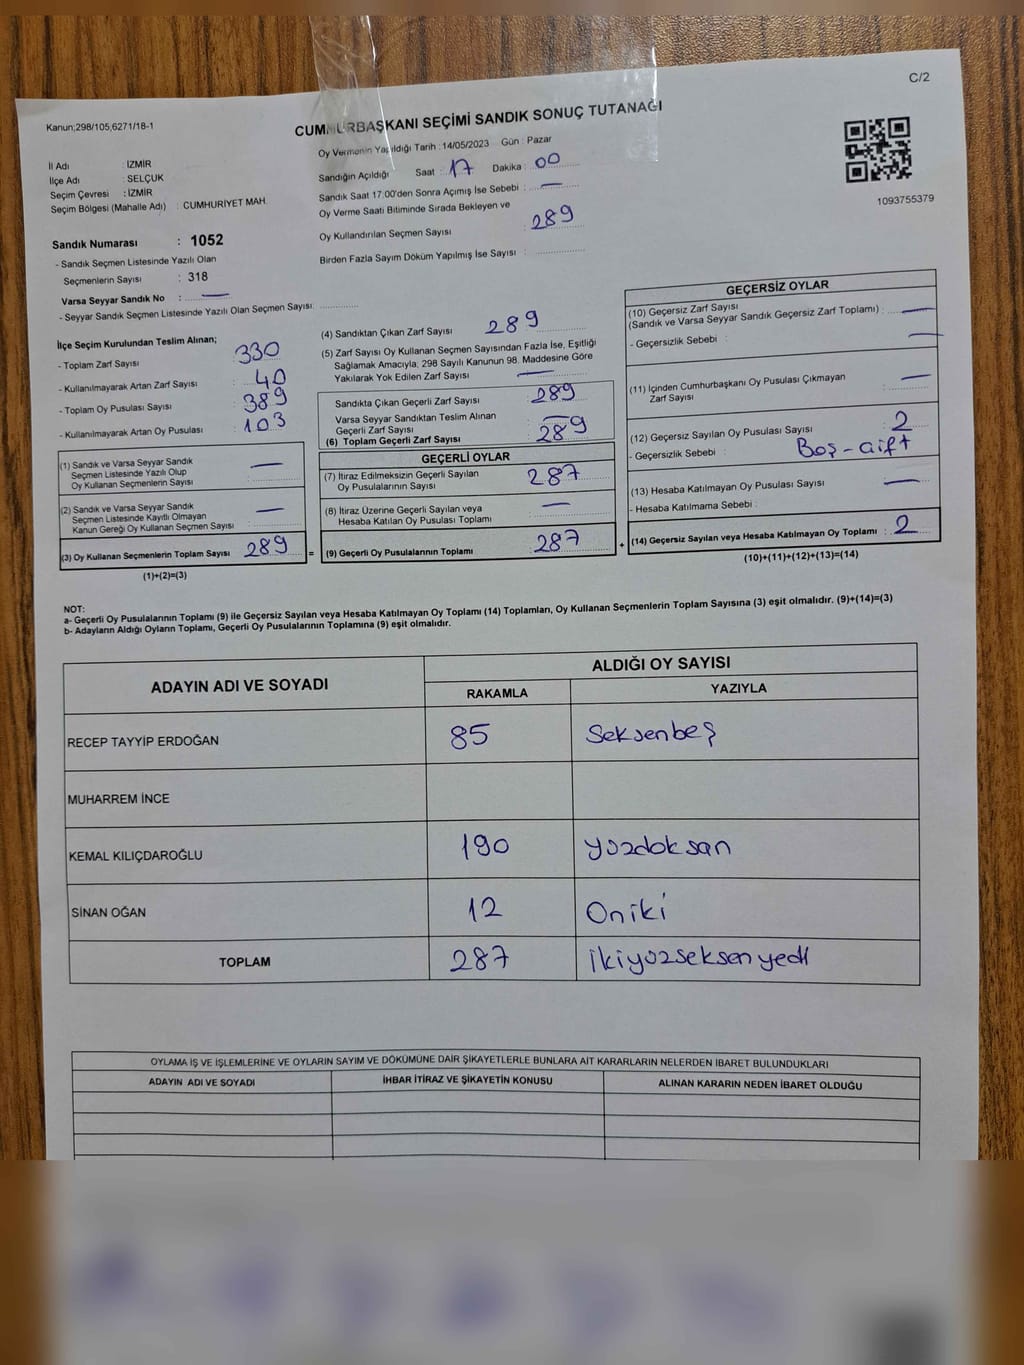 C/2
Kanun;298/105,6271/18-1
CUMHURBAŞKANI SEÇİMİ SANDIK SONUÇ TUTANAĞI
Oy Vermenin Yapıldığı Tarih :14/05/2023 Gün : Pazar
İl Adı : İZMİR
İlçe Adı : SELÇUK
Seçim Çevresi : İZMİR
Seçim Bölgesi (Mahalle Adı) : CUMHURİYET MAH.
Sandığın Açıldığı Saat : 17 Dakika : 00
Sandık Saat 17:00'den Sonra Açımış İse Sebebi : —
Oy Verme Saati Bitiminde Sırada Bekleyen ve
Oy Kullandırılan Seçmen Sayısı : 289
Birden Fazla Sayım Döküm Yapılmış İse Sayısı :
1093755379
Sandık Numarası : 1052
- Sandık Seçmen Listesinde Yazılı Olan
Seçmenlerin Sayısı : 318
Varsa Seyyar Sandık No : —
- Seyyar Sandık Seçmen Listesinde Yazılı Olan Seçmen Sayısı:
İlçe Seçim Kurulundan Teslim Alınan;
- Toplam Zarf Sayısı : 330
- Kullanılmayarak Artan Zarf Sayısı : 40
- Toplam Oy Pusulası Sayısı : 389
- Kullanılmayarak Artan Oy Pusulası : 103
(1) Sandık ve Varsa Seyyar Sandık
Seçmen Listesinde Yazılı Olup
Oy Kullanan Seçmenlerin Sayısı —
(2) Sandık ve Varsa Seyyar Sandık
Seçmen Listesinde Kayıtlı Olmayan
Kanun Gereği Oy Kullanan Seçmen Sayısı —
(3) Oy Kullanan Seçmenlerin Toplam Sayısı 289 =
(1)+(2)=(3)
(4) Sandıktan Çıkan Zarf Sayısı 289
(5) Zarf Sayısı Oy Kullanan Seçmen Sayısından Fazla İse, Eşitliği
Sağlamak Amacıyla; 298 Sayılı Kanunun 98. Maddesine Göre
Yakılarak Yok Edilen Zarf Sayısı —
Sandıkta Çıkan Geçerli Zarf Sayısı : 289
Varsa Seyyar Sandıktan Teslim Alınan
Geçerli Zarf Sayısı : —
(6) Toplam Geçerli Zarf Sayısı 289
GEÇERLİ OYLAR
(7) İtiraz Edilmeksizin Geçerli Sayılan
Oy Pusulalarının Sayısı 287
(8) İtiraz Üzerine Geçerli Sayılan veya
Hesaba Katılan Oy Pusulası Toplamı —
(9) Geçerli Oy Pusulalarının Toplamı 287 +
GEÇERSİZ OYLAR
(10) Geçersiz Zarf Sayısı
(Sandık ve Varsa Seyyar Sandık Geçersiz Zarf Toplamı) : —
- Geçersizlik Sebebi : —
(11) İçinden Cumhurbaşkanı Oy Pusulası Çıkmayan
Zarf Sayısı : —
(12) Geçersiz Sayılan Oy Pusulası Sayısı : 2
- Geçersizlik Sebebi : Boş - çift
(13) Hesaba Katılmayan Oy Pusulası Sayısı —
- Hesaba Katılmama Sebebi
(14) Geçersiz Sayılan veya Hesaba Katılmayan Oy Toplamı : 2
(10)+(11)+(12)+(13)=(14)
NOT:
a- Geçerli Oy Pusulalarının Toplamı (9) ile Geçersiz Sayılan veya Hesaba Katılmayan Oy Toplamı (14) Toplamları, Oy Kullanan Seçmenlerin Toplam Sayısına (3) eşit olmalıdır. (9)+(14)=(3)
b- Adayların Aldığı Oyların Toplamı, Geçerli Oy Pusulalarının Toplamına (9) eşit olmalıdır.
ADAYIN ADI VE SOYADI ALDIĞI OY SAYISI
RAKAMLA YAZIYLA
RECEP TAYYİP ERDOĞAN 85 Seksenbeş
MUHARREM İNCE
KEMAL KILIÇDAROĞLU 190 yüzdoksan
SİNAN OĞAN 12 Oniki
TOPLAM 287 ikiyüzseksenyedi
OYLAMA İŞ VE İŞLEMLERİNE VE OYLARIN SAYIM VE DÖKÜMÜNE DAİR ŞİKAYETLERLE BUNLARA AİT KARARLARIN NELERDEN İBARET BULUNDUKLARI
ADAYIN ADI VE SOYADI İHBAR İTİRAZ VE ŞİKAYETİN KONUSU ALINAN KARARIN NEDEN İBARET OLDUĞU